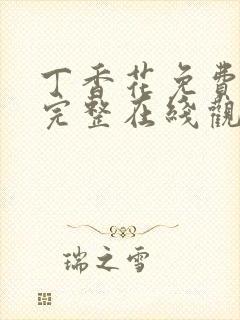 丁香花免費
完整在綫觀
瑞之雪